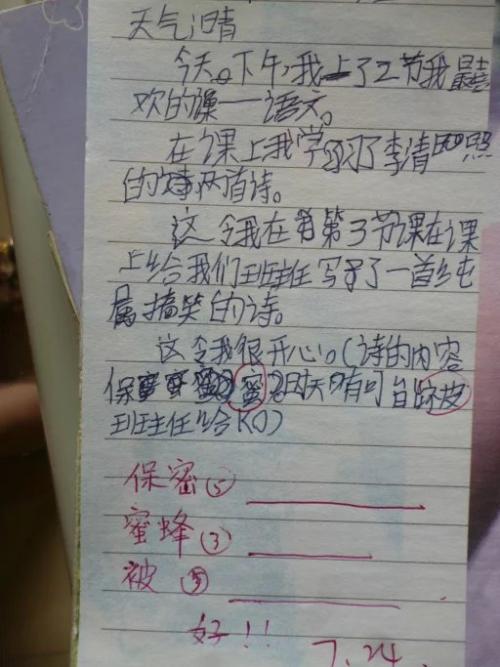 天气:晴
今天。下午,我上了2节我最喜
欢的课——语文。
在课上我学习了李清照
的两首诗。
这令我在第3节课在课
上给我们班主任写了一首纯
属搞笑的诗。
这令我很开心。(诗的内容
保蜜,因为有可能被
班主任给KO)
保密⑤
蜜蜂③
被⑤
好!!
7.24